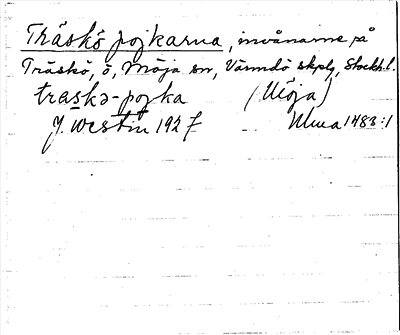 Träskö pojkarna, invånarne på
Träskö, ö, Möja sn, Värmdö skplg, Stockh.l.
traskə-pojka (Möja)
J. Westin 1927 Ulma 1483:1